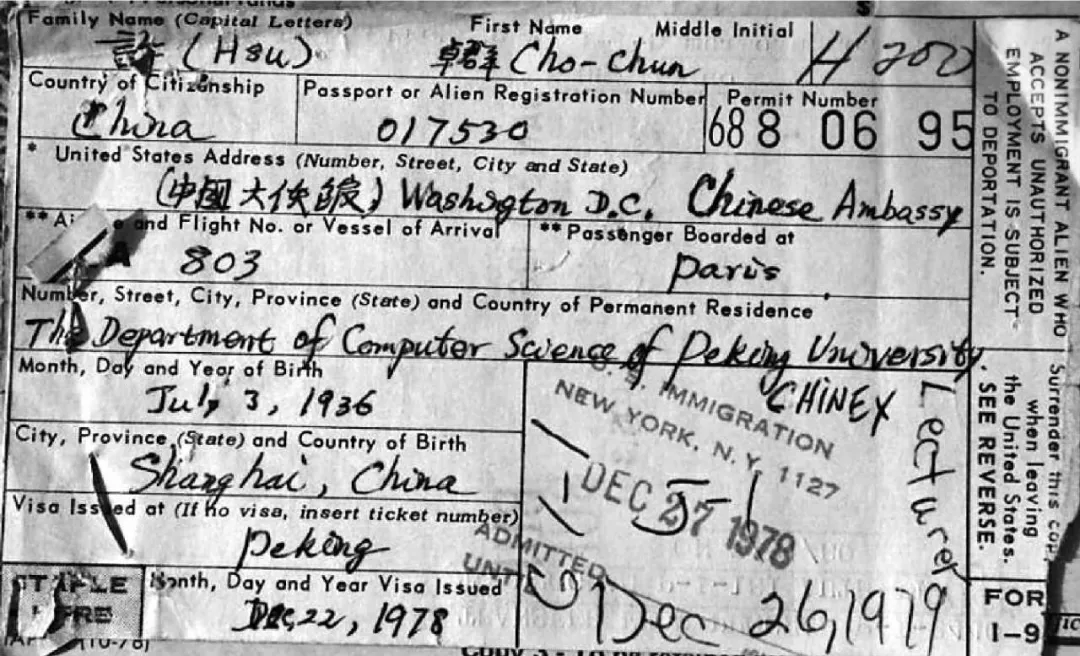 Family Name (Capital Letters) First Name Middle Initial
許 (Hsu) 卓群 Cho-chun H 200
Country of Citizenship Passport or Alien Registration Number Permit Number
China 017530 688 06 95
* United States Address (Number, Street, City and State)
(中國大使館) Washington D.C. Chinese Ambassy
** and Flight No. or Vessel of Arrival ** Passenger Boarded at
803 Paris
Number, Street, City, Province (State) and Country of Permanent Residence
The Department of Computer Science of Peking University.
Month, Day and Year of Birth
July 3, 1936
CHINEX
Lecturer
City, Province (State) and Country of Birth
Shanghai, China
Visa Issued at (If no visa, insert ticket number)
Peking
Month, Day and Year Visa Issued
Dec, 22, 1978
STAPLE
HERE
U. S. IMMIGRATION
NEW YORK, N.Y. 1127
DEC 27 1978
ADMITTED
UNTIL
Dec 26, 1979
A NONIMMIGRANT ALIEN WHO
ACCEPTS UNAUTHORIZED
EMPLOYMENT IS SUBJECT
TO DEPORTATION.
Surrender this copy
when leaving
the United States.
SEE REVERSE.
FOR
I-9